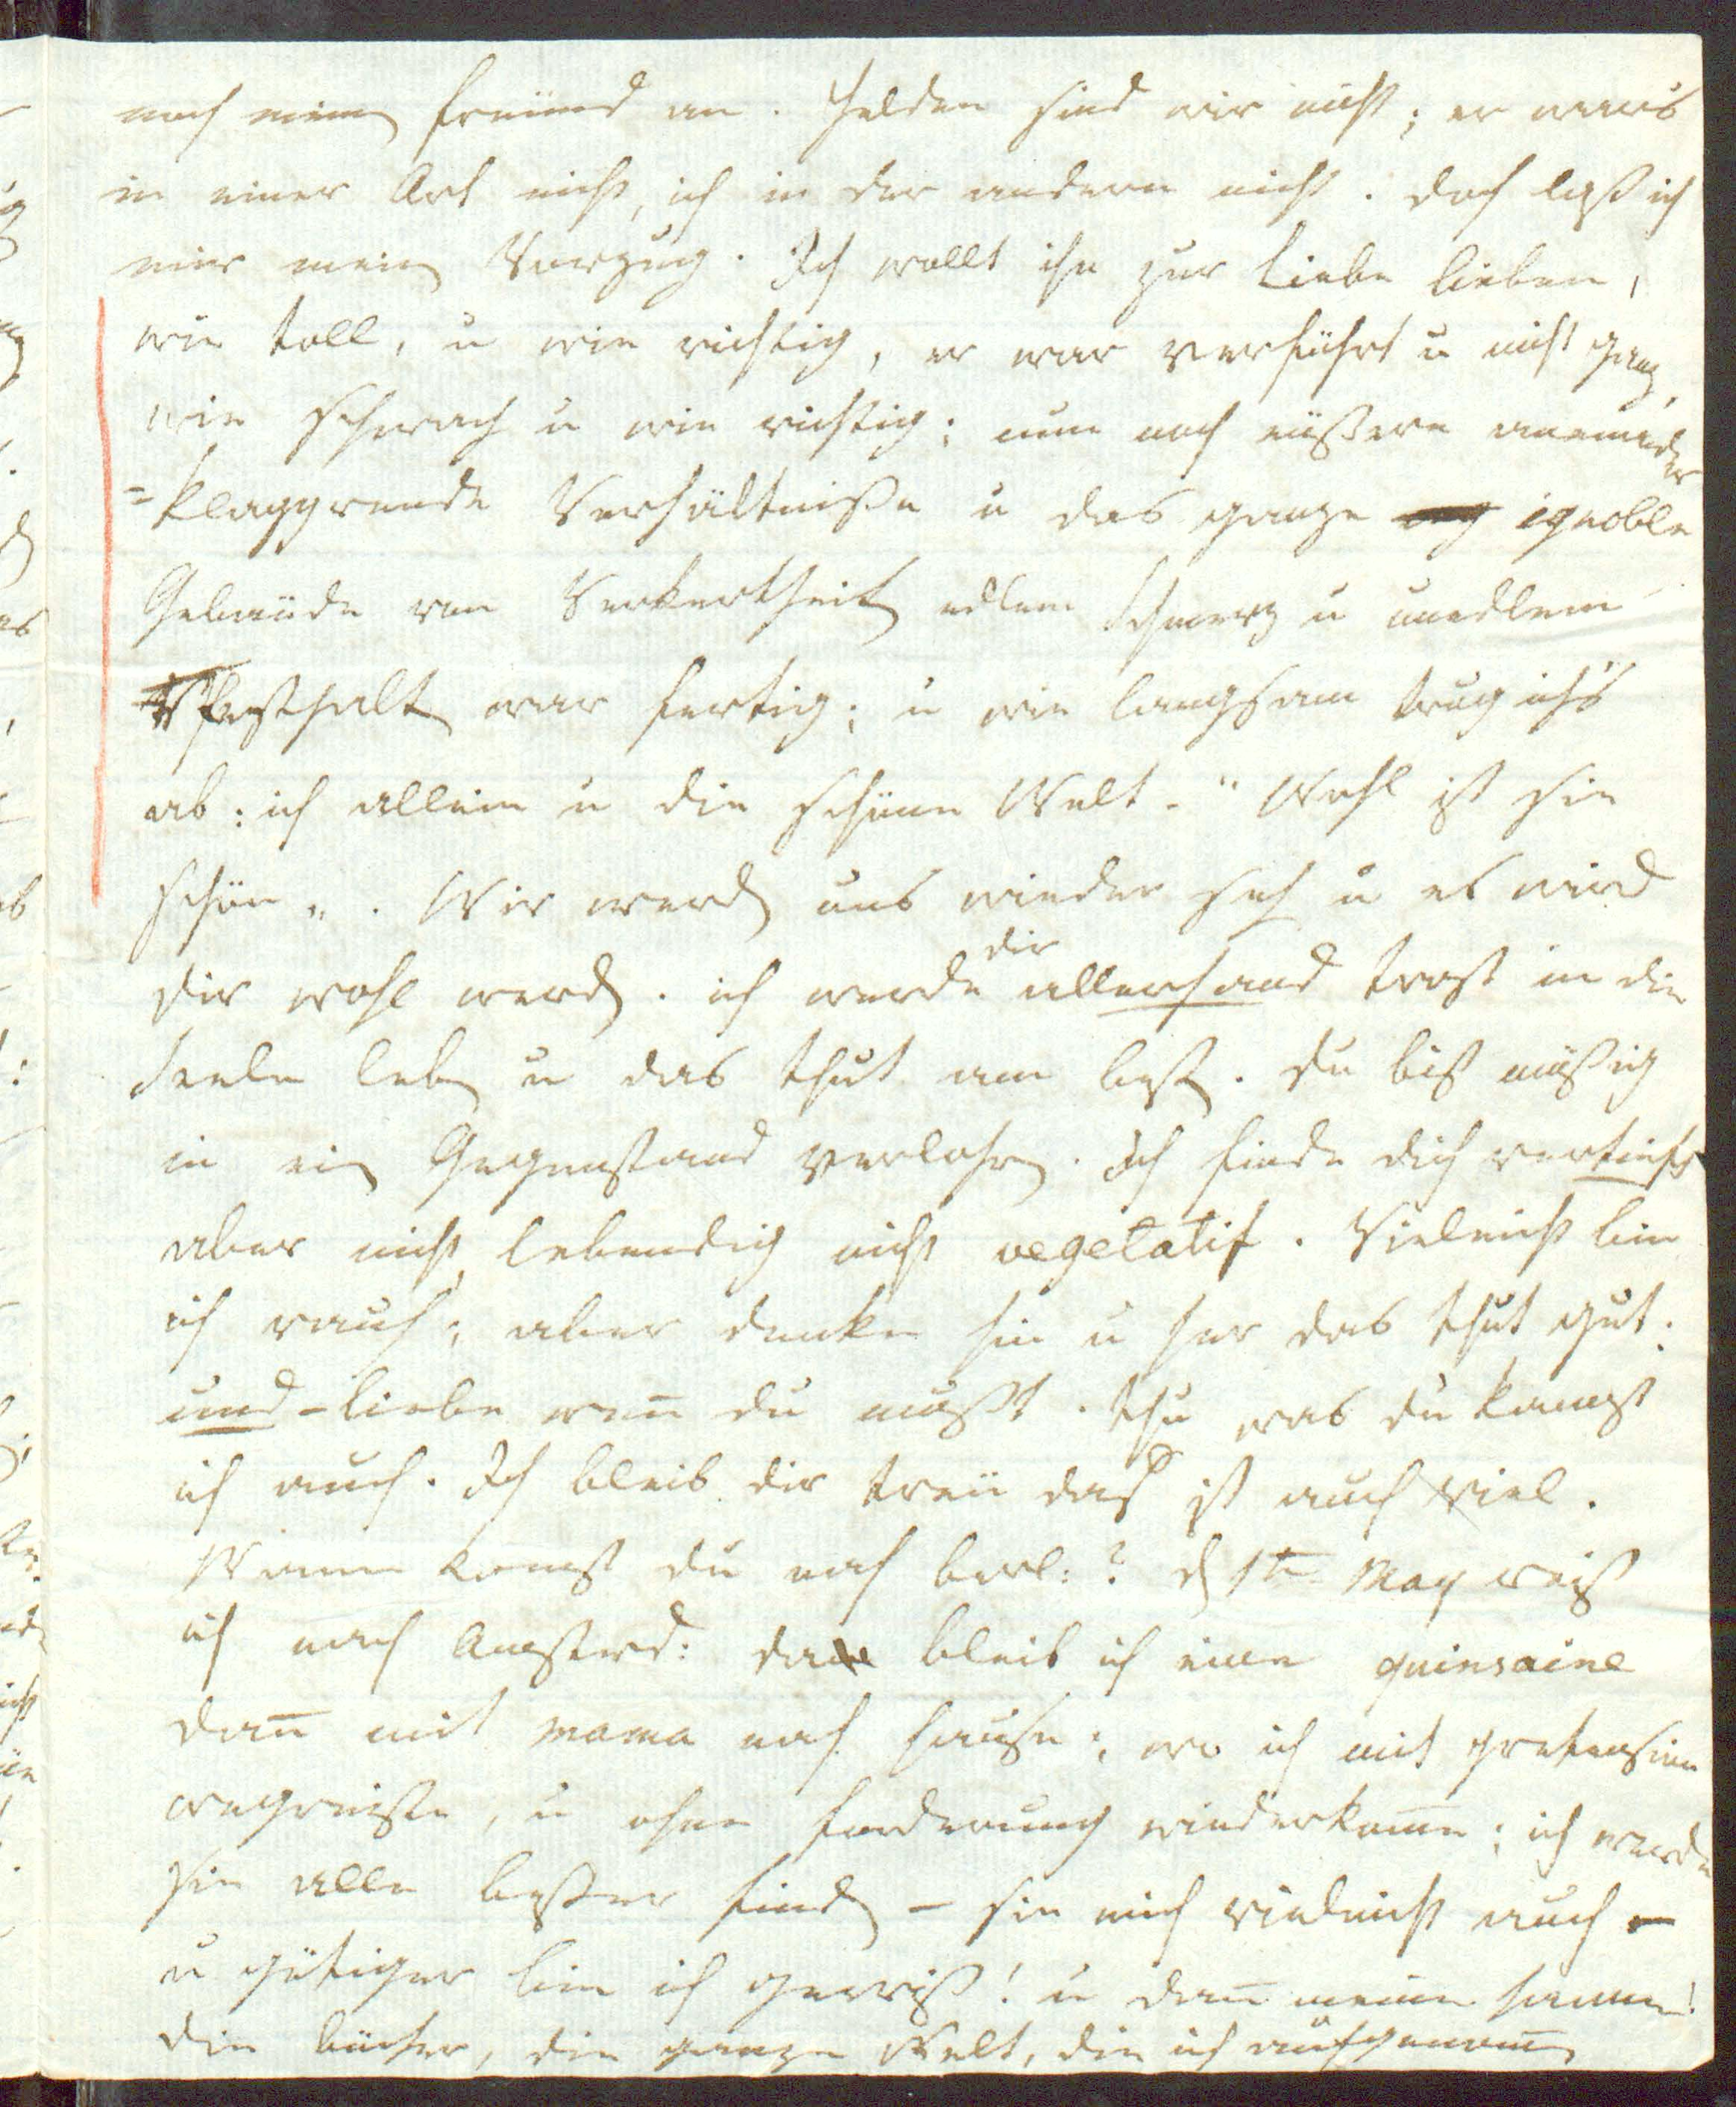 noch einen freünd an. Helden sind wir nicht; er war's
in einer Art nicht, ich in der andern nicht. doch laß ich
mir mein Vorzug. Ich wollt ihn zur Liebe lieben,
wie toll, u wie richtig, er war verführt u nicht ganz,
wie schwach u wie richtig; nun noch aüßere aneinander
=klappende Verhältniße u das ganze ignoble
Gebaüde von Verkertheit edlem Schmerz u unedlem
Festhalten war fertig; u wie langsam trug ich's
ab: ich allein u die schöne Welt. „Wohl ist sie
schön". Wir werden uns wieder sehen u es wird
dir wohl werden. ich werde dir allerhand trost in die
Seele leben u das thut am besten. du bist müßig
in ein Gegenstand verlohren. Ich finde dich vertieft
aber nicht lebendig nicht vegetatif. Vieleicht bin
ich rauh; aber denke hin u her das thut gut.
und – liebe wenn du mußt. thu was du kannst
ich auch. Ich bleib dir treü das ist auch viel.
Wann komst du nach berl:? den 1ten May reiß
ich nach Amsterd: da bleib ich eine quinsaine
dann mit mama nach hause; wo ich mit pretension
wegreißte, u ohne forderung wiederkomme; ich werde
sie alle beßer finden – sie mich vieleicht auch –
u gütiger bin ich gewiß! u dann meine Hanne!
die bücher, die ganze Welt, die ich aufgenommen